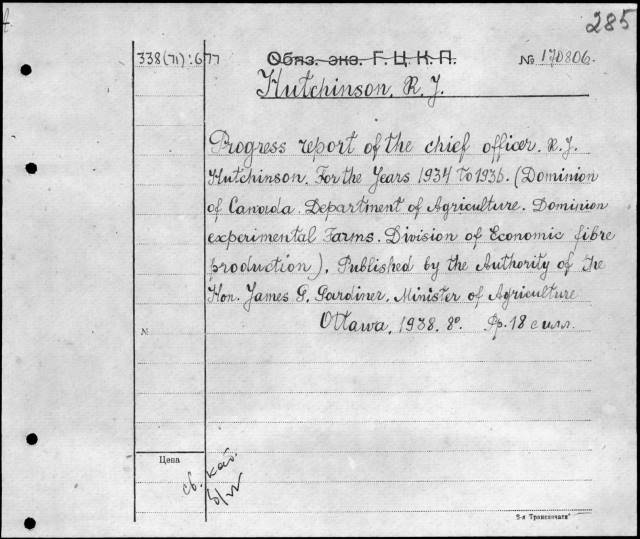 285
338(71):677
Обяз. экз. Г.Ц.К.П.
№ 170806.
Hutchinson, R. J.
Progress report of the chief officer. R. J.
Hutchinson. For the Years 1934 to 1936. (Dominion
of Canada. Department of Agriculture. Dominion
experimental Farms. Division of Economic fibre
production). Published by the Authority of the
Hon. James G. Gardiner. Minister of Agriculture
Ottawa, 1938. 8°.
18 с илл.
№
Цена
св. каб.